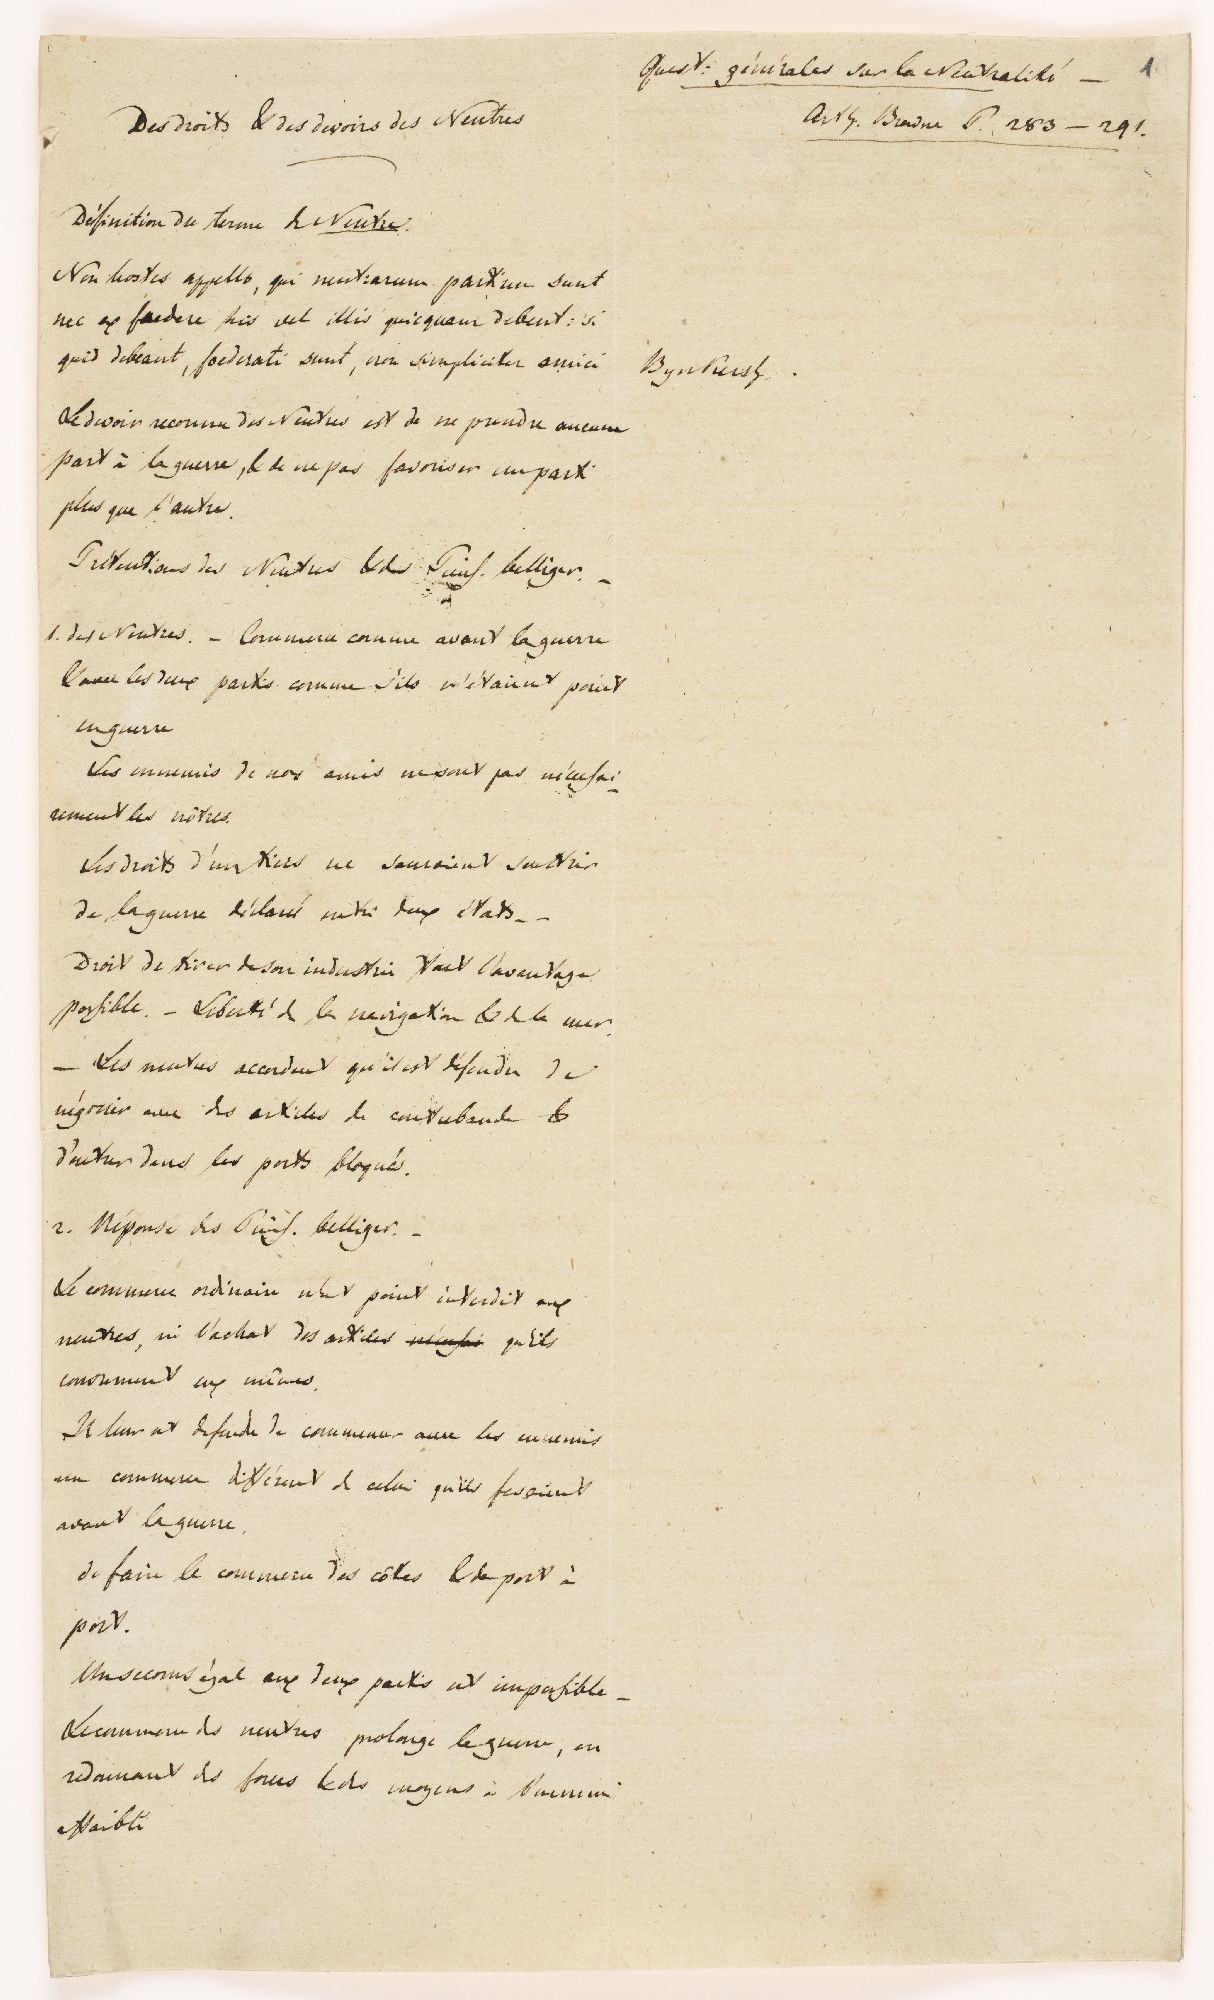 Quest: générales sur la Neutralité — 1
Arth. Browne P. 283 — 291.
Des droits & des devoirs des Neutres
Définition du terme de Neutre.
Non hostes appello, qui neutrarum partium sunt
nec ex foedere his vel illis quicquam debent: si
quid debeant, foederati sunt, non simpliciter amici
Bynkersh.
Le devoir reconnu des Neutres est de ne prendre aucune
part à la guerre, & de ne pas favoriser un parti
plus que l'autre.
Prétentions des Neutres & des Puiss. belliger. —
1. des Neutres. — Commerce comme avant la guerre
& avec les deux partis comme s'ils n'étaient point
en guerre
Les ennemis de nos amis ne sont pas nécessai-
rement les nôtres.
Les droits d'un tiers ne sauroient souffrir
de la guerre déclaré entre deux états. —
Droit de tirer de son industrie tout l'avantage
possible. — Liberté de la navigation & de la mer.
— Les neutres accordent qu'il est défendu de
négocier avec des articles de contrebande &
d'entrer dans les ports bloqués.
2. Réponse des Puiss. belliger. —
Le commerce ordinaire n'est point interdit aux
neutres, ni l'achat des articles nécessai qu'ils
consument eux mêmes.
Il leur est défendu de commencer avec les ennemis
un commerce différent de celui qu'ils fesoient
avant la guerre.
de faire le commerce des côtes & de port à
port.
Un secours égal aux deux partis est impossible —
Le commerce des neutres prolonge la guerre, en
redonnant des forces & des moyens à l'ennemi
affaibli